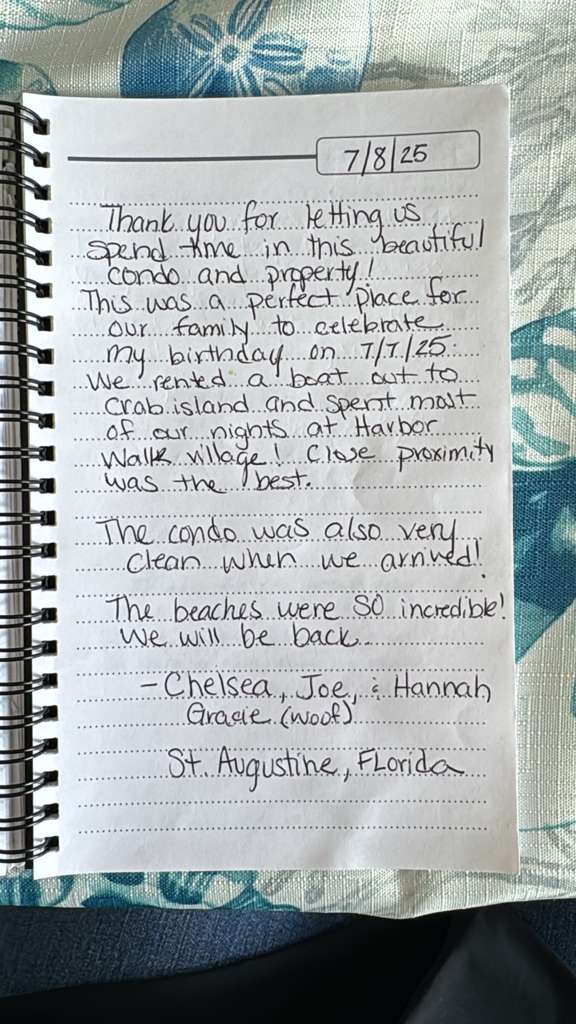 7/8/25
Thank you for letting us
spend time in this beautiful
condo and property!
This was a perfect place for
our family to celebrate
my birthday on 7/7/25.
We rented a boat out to
Crab island and spent most
of our nights at Harbor
Walk Village! Close proximity
was the best.
The condo was also very
clean when we arrived!
The beaches were SO incredible!
We will be back.
- Chelsea, Joe, & Hannah
Gracie (woof)
St. Augustine, Florida